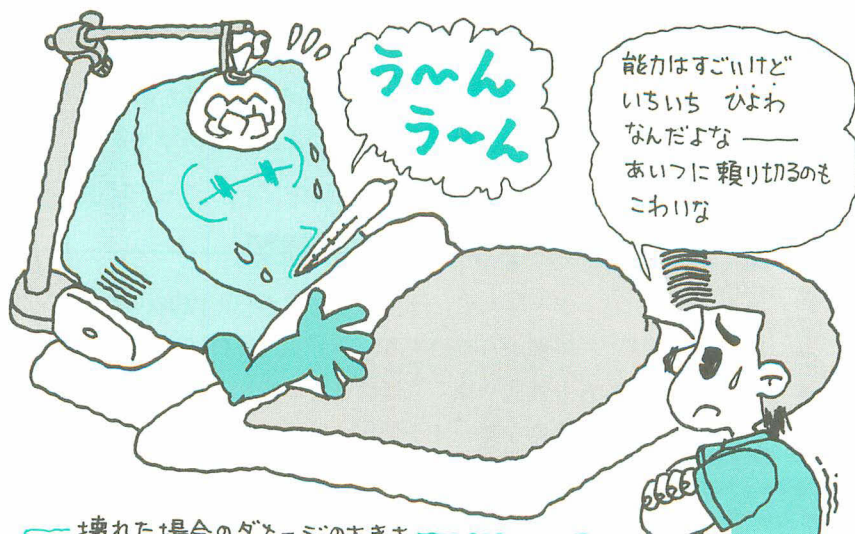 う〜ん
う〜ん
能力はすごいけど
いちいち ひよわ
なんだよな——
あいつに頼り切るのも
こわいな
壊れた場合のダメージの大きさ